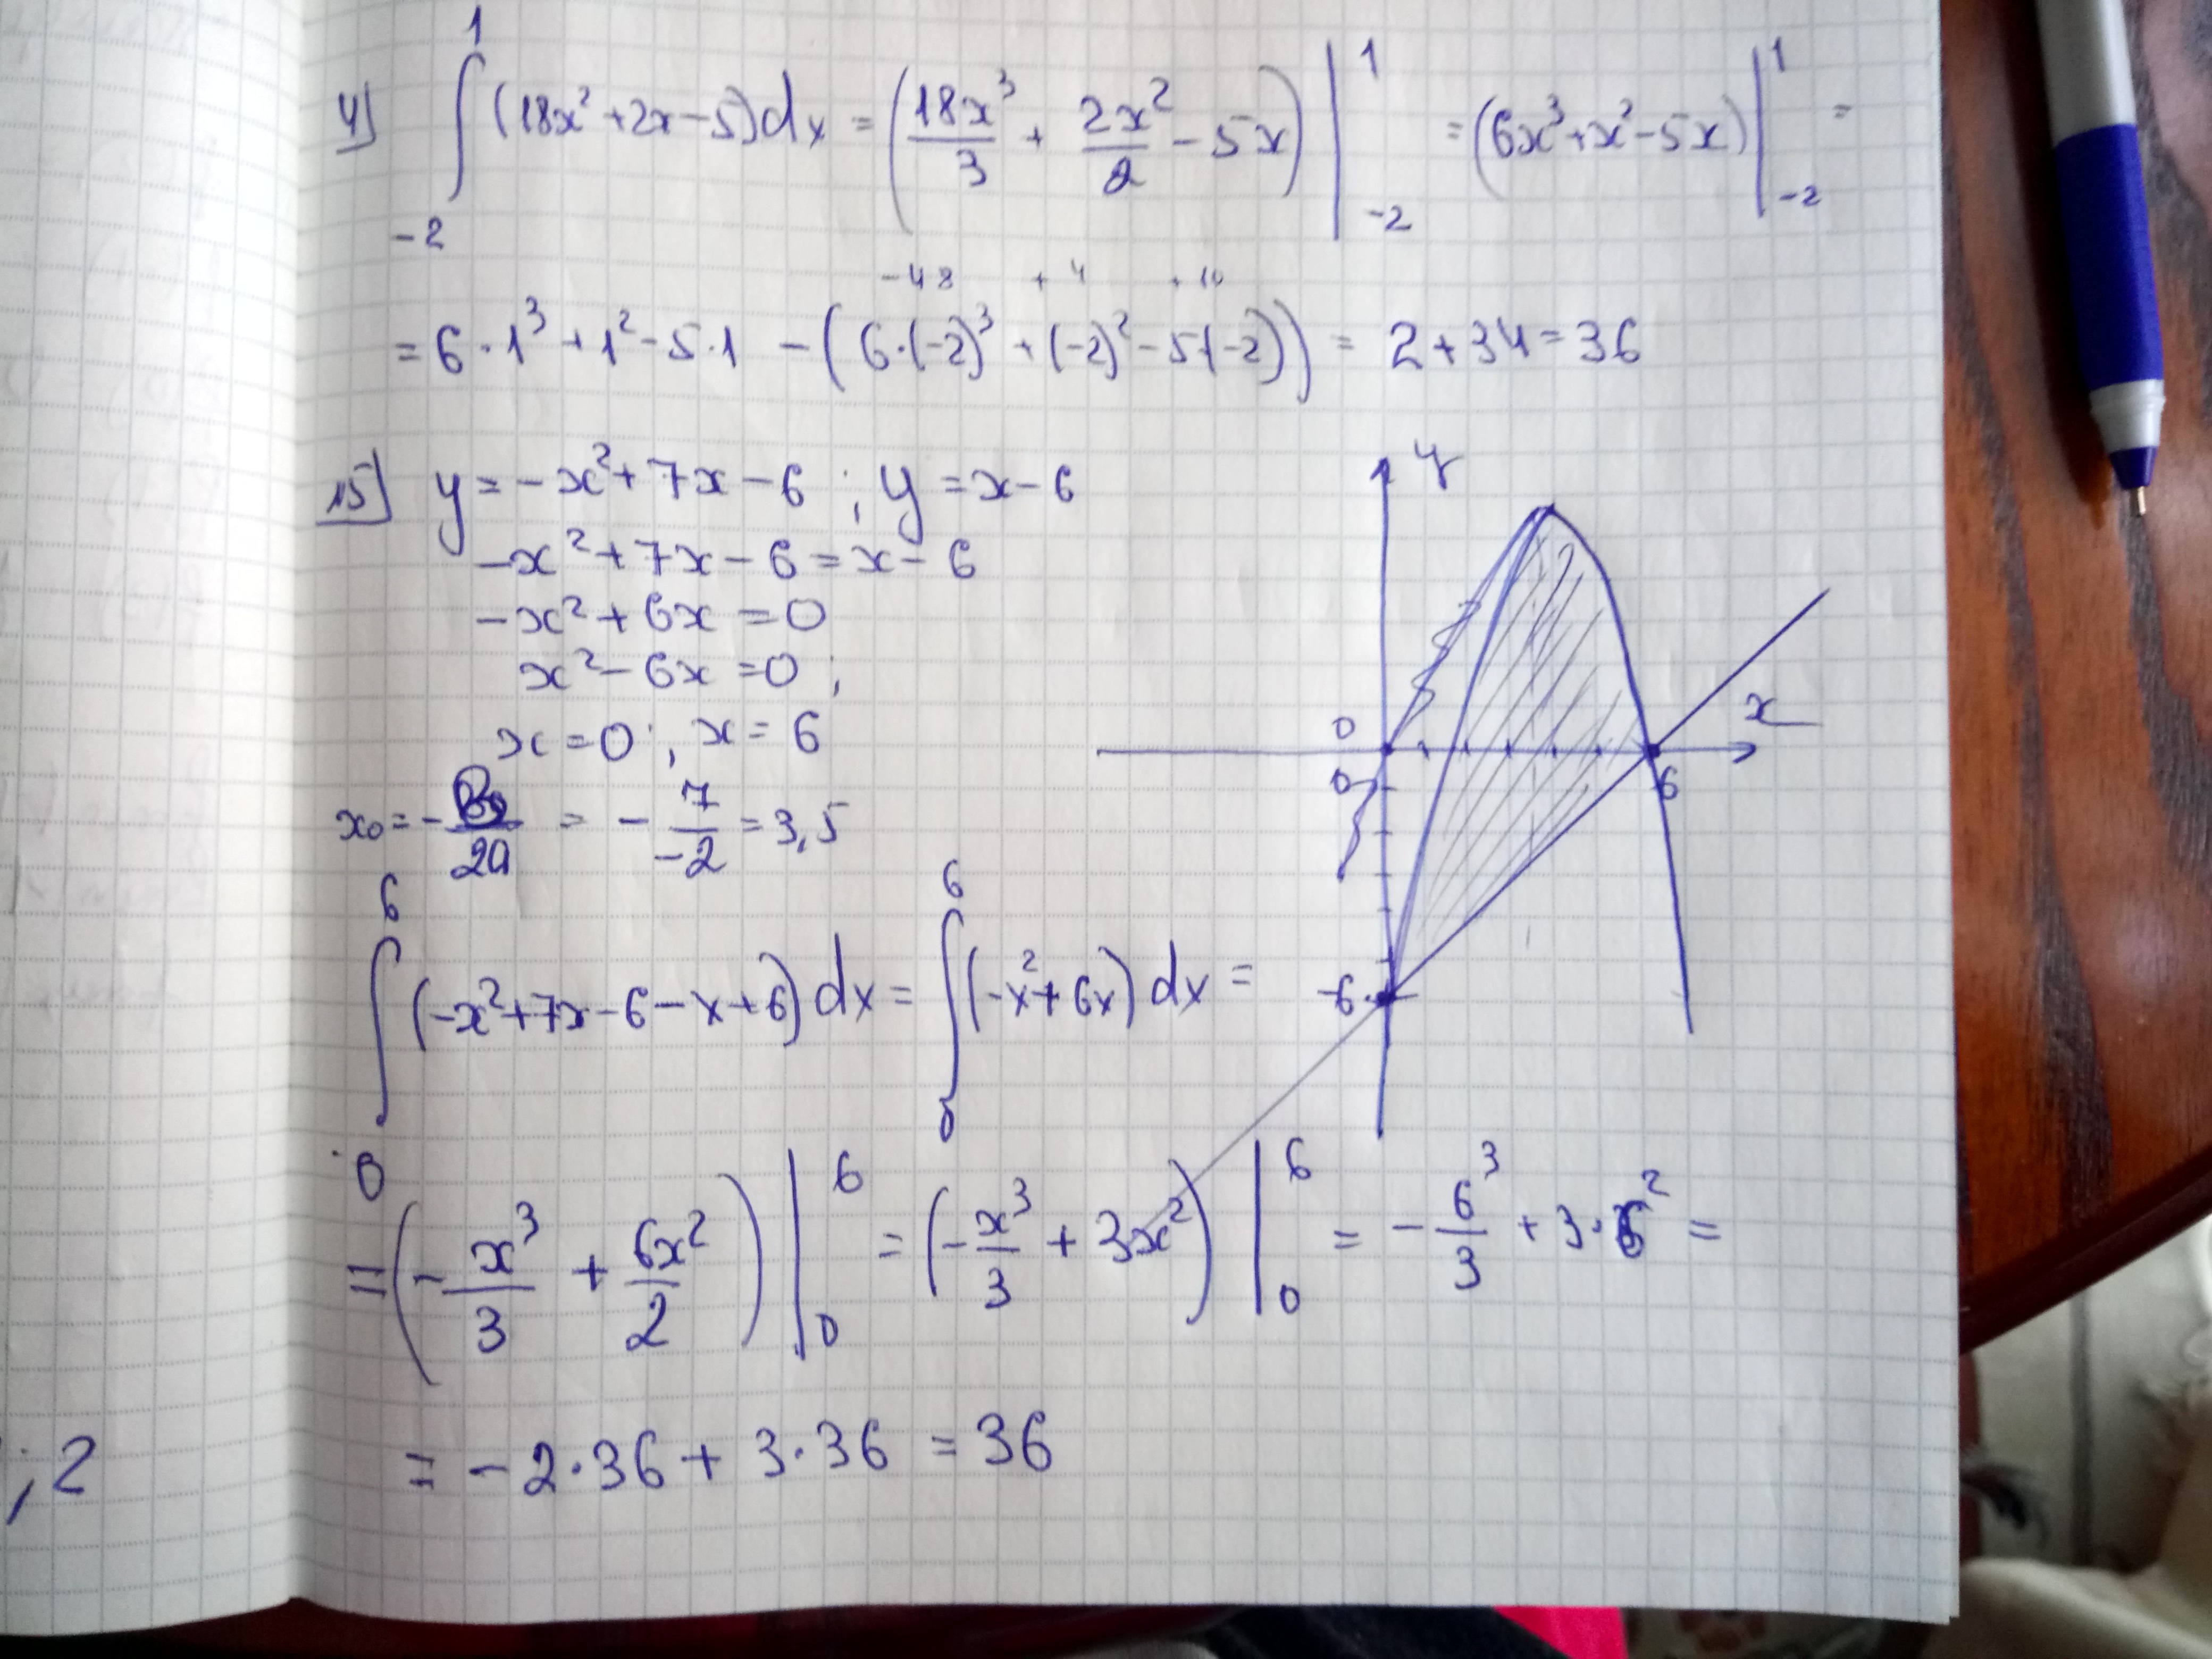 4) ∫₋₂¹ (18x²+2x-5)dx = (18x³/3 + 2x²/2 - 5x) |₋₂¹ = (6x³+x²-5x) |₋₂¹ =
-48 +4 +10
= 6·1³+1²-5·1 -(6·(-2)³+(-2)²-5(-2)) = 2+34=36
15) y=-x²+7x-6 ; y=x-6
-x²+7x-6=x-6
-x²+6x=0
x²-6x=0 ;
x=0 ; x=6
x₀=-b/2a = -7/-2 = 3,5
y
x
0
0
6
-6
∫₀⁶ (-x²+7x-6-x+6)dx = ∫₀⁶ (-x²+6x)dx =
=(-x³/3 + 6x²/2) |₀⁶ = (-x³/3 + 3x²) |₀⁶ = -6³/3 + 3·6² =
= -2·36+3·36 = 36
; 2